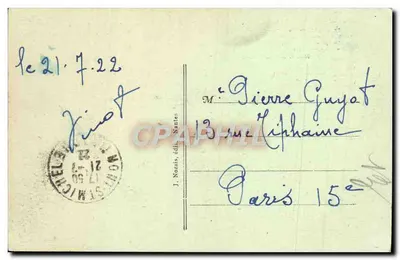 le 21.7.22
M. Pierre Guyot
13 rue Tiphaine
Paris 15e
J. Nozais, édit., Nantes
MONT-ST-MICHEL
21
22
CPAPHIL